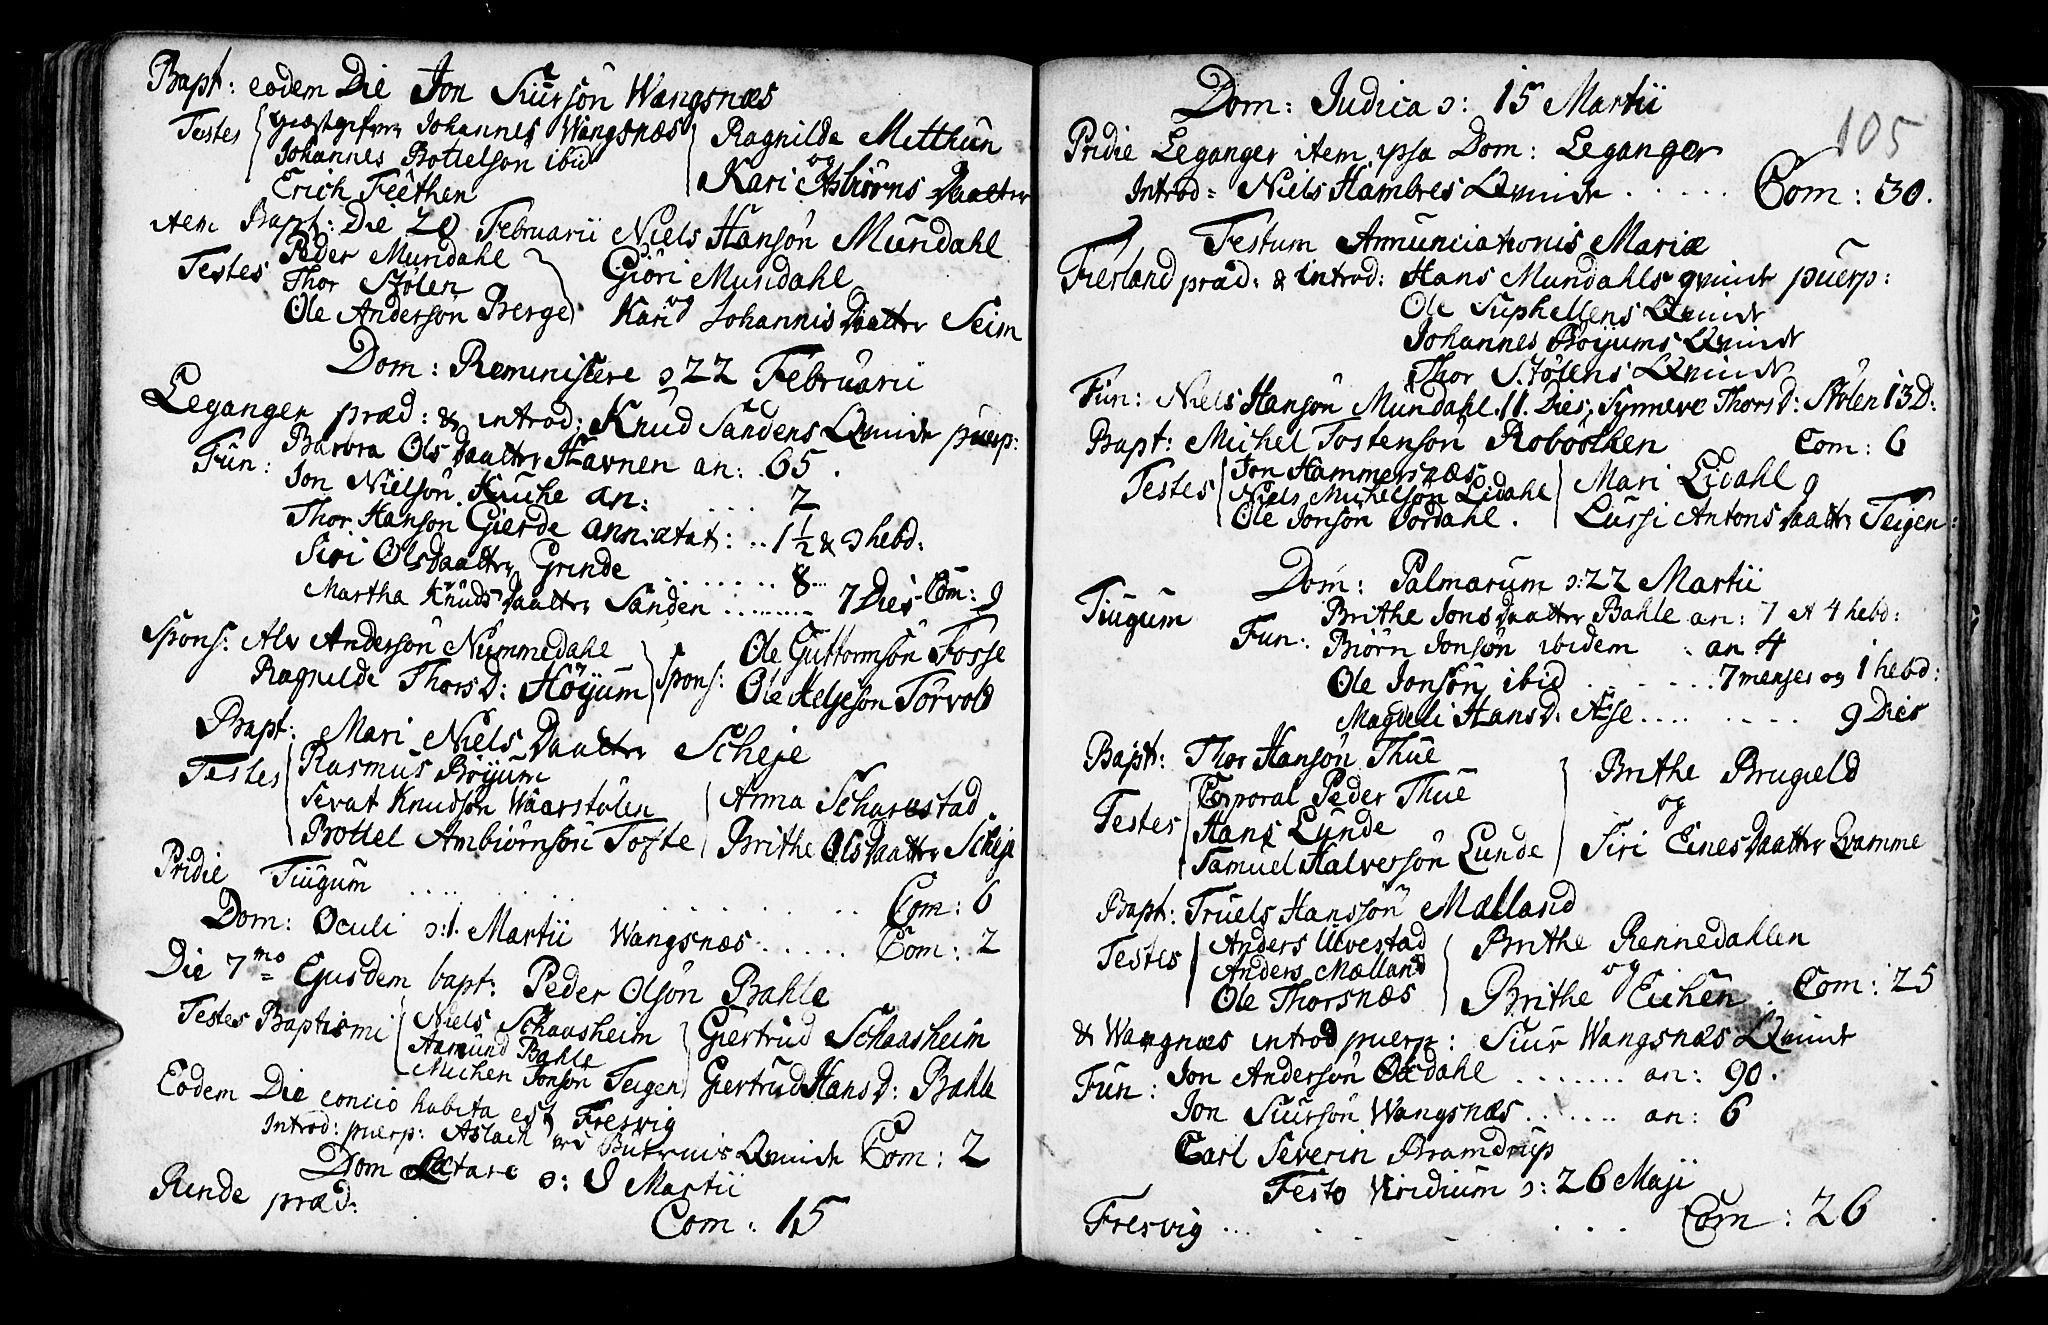 Bapt: eodem Die Jon Siursøn Wangsnæs
Testes Giestgifver Johannes Wangsnæs Ragnilda Metthun
Johannes Bottelsøn ibid og
Erich Feethen Kari Asbiørns Daatter
item Bapt: Die 20 Februarii Niels Hansøn Mundahl
Testes Peder Mundahl Giøri Mundahl
Thor Stølen og
Ole Andersøn Berge Kari Johannis Daatter Seim
Dom: Reminiscere ɔ: 22 Februarii
Leganger præd: & introd: Knud Sandens Qvinde puerp:
Fun: Barbra Ols Daatter Havnen an: 65.
Jon Nielsøn Huche an: .... 7
Thor Hansøn Gierde ann: ætat: .. 1½ & 3 hebd:
Siri Ols Daatter Grinde ........ 8...
Martha Knuds Daatter Sanden ........ 7 Dies Com: 9
Spons: Alv Andersøn Nummedahl Spons: Ole Guttormsøn Fosse
Ragnilde Thors D: Høyum Ole Helgeson Torvold
Bapt: Mari Niels Daatter Scheje
Testes Rasmus Bøyum
Sevat Knudsøn Waarstølen Anna Scharestad
Bottel Ambiørnsøn Tofte Brithe Ols Daatter Scheje
Pridie Tiugum .... Com: 6
Dom: Oculi ɔ: 1. Martii Wangsnæs ..... Com: 2
Die 7mo Ejusdem bapt: Peder Olsøn Bahle
Testes Baptismi Niels Schaasheim Giertrud Schaasheim
Aamund Bahle
Michen Jonsøn Teigen Giertrud Hans D: Bahle
Eodem Die concio habita est Fresvig
Introd: puerp: Aslach Qvinde Com: 2
Dom Lætare ɔ: 8 Martii
Rinde præd:
Com: 15
105
Dom: Judica ɔ: 15 Martii
Pridie Leganger item ipsa Dom: Leganger
Introd: Niels Hambres Qvinde ..... Com: 30.
Festum Annunciationis Mariæ
Fierland præd: & introd: Hans Mundahls qvinde puerp:
Ole Suphellens Qvinde
Johannes Bøyums Qvinde
Thor Stølens Qvinde
Fun: Niels Hansøn Mundahl. 11. Dies, Synneve Thors D: Stølen 13 D:
Bapt: Michel Tostensøn Roboølken Com: 6
Testes Jon Hammersnæs Mari Lidahl og
Niels Michelsøn Lidahl
Ole Jonsøn Jordahl. Lussi Antons Daatter Teigen:
Dom: Palmarum ɔ: 22 Martii
Tiugum Brithe Jons Daatter Bahle an: 7 et 4 hebd:
Fun: Biørn Jonsøn ibidem . an 4
Ole Jonsøn ibid ....... 7 menses og 1 hebd:
Magdeli Hans D: Asse .... .... 9 Dies
Bapt: Thor Hansøn Thue
Testes Corporal Peder Thue Brithe Brugield
Hans Lunde og
Samuel Halversøn Lunde Siri Eines Daatter Qvamme
Bapt: Truels Hanssøn Mælland
Testes Anders Ulvestad Brithe Rennedahlen
Anders Mælland og
Ole Thorsnæs Brithe Eichen. Com: 25
& Wangnæs introd puerp: Siur Wangsnæs Qvinde
Fun: Jon Andersøn Ordahl ....... an: 90.
Jon Siursøn Wangsnæs ....... an: 6
Carl Severin Bramdrup
Festo Viridium ɔ: 26 Maji
Fresvig ... Com: 26